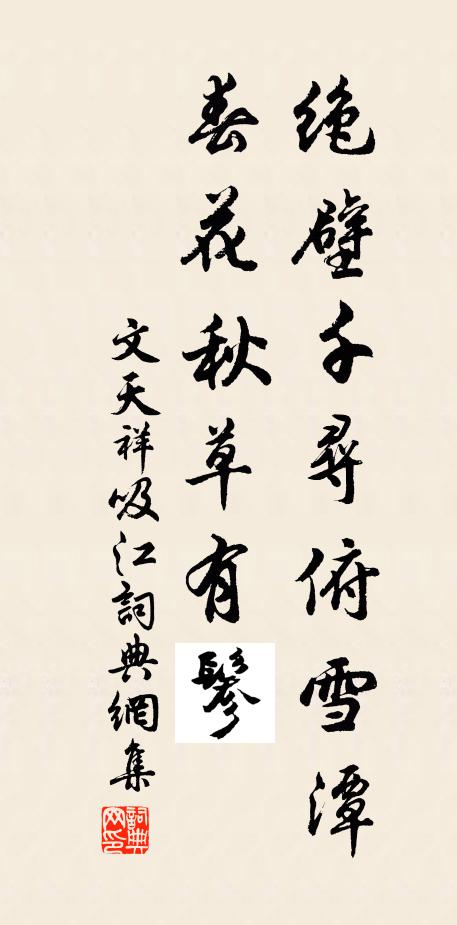 絶壁千尋俯雪潭
春花秋草有鬖
文天祥吸江詞典網集
詞典网印